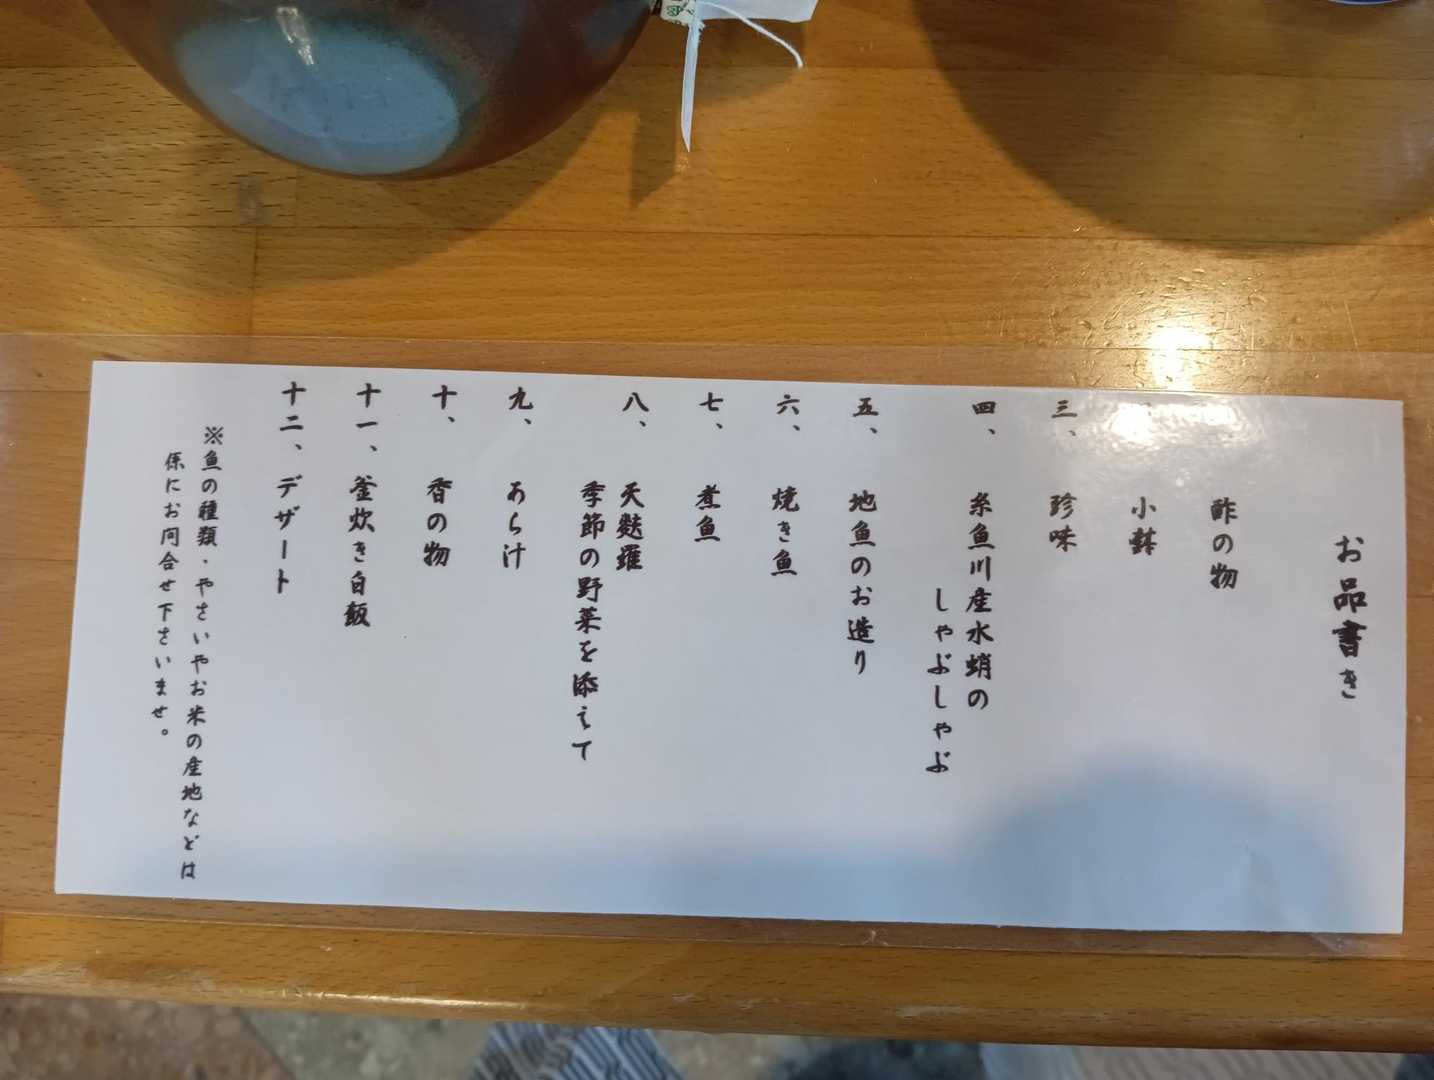 お品書き
酢の物
小鉢
三、 珍味
四、 糸魚川産水蛸の
しゃぶしゃぶ
五、 地魚のお造り
六、 焼き魚
七、 煮魚
八、 天麩羅
季節の野菜を添えて
九、 あら汁
十、 香の物
十一、 釜炊き白飯
十二、 デザート
※魚の種類・やさいやお米の産地などは
係にお問合せ下さいませ。